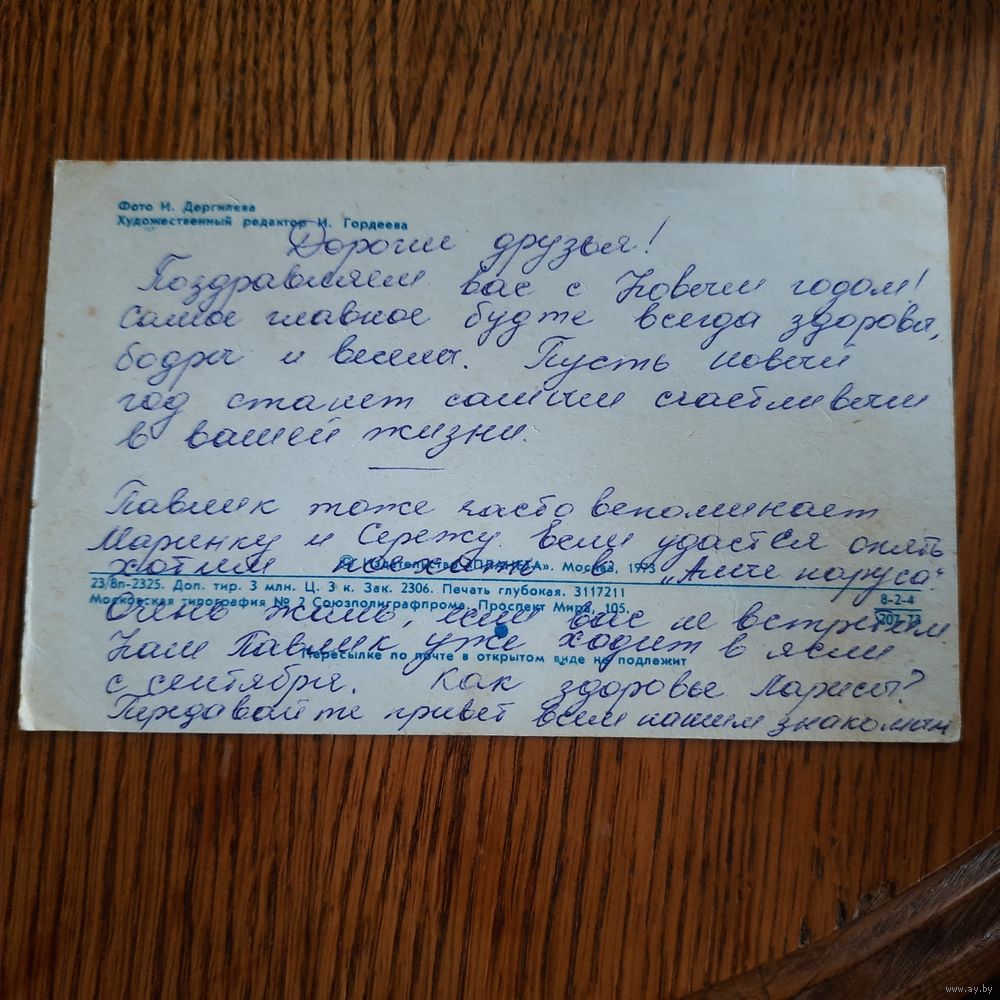 Фото И. Дергилева
Художественный редактор И. Гордеева
Дорогие друзья!
Поздравляем вас с Новым годом!
Самое главное будте всегда здоровы,
бодры и веселы. Пусть новый
год станет самым счастливым
в вашей жизни.
Павлик тоже часто вспоминает
Маринку и Сережу. Если удастся опять
хотим поехать в „Алые паруса“
© Издательство «ПЛАНЕТА». Москва, 1973
23/8п-2325. Доп. тир. 3 млн. Ц. 3 к. Зак. 2306. Печать глубокая. 3117211
8-2-4
207-73
Московская типография № 2 Союзполиграфпрома. Проспект Мира, 105.
Очень жаль, если вас не встретим
Наш Павлик уже ходит в ясли
Пересылке по почте в открытом виде не подлежит
с сентября. Как здоровье Ларисы?
Передавайте привет всем нашим знакомым
www.ay.by